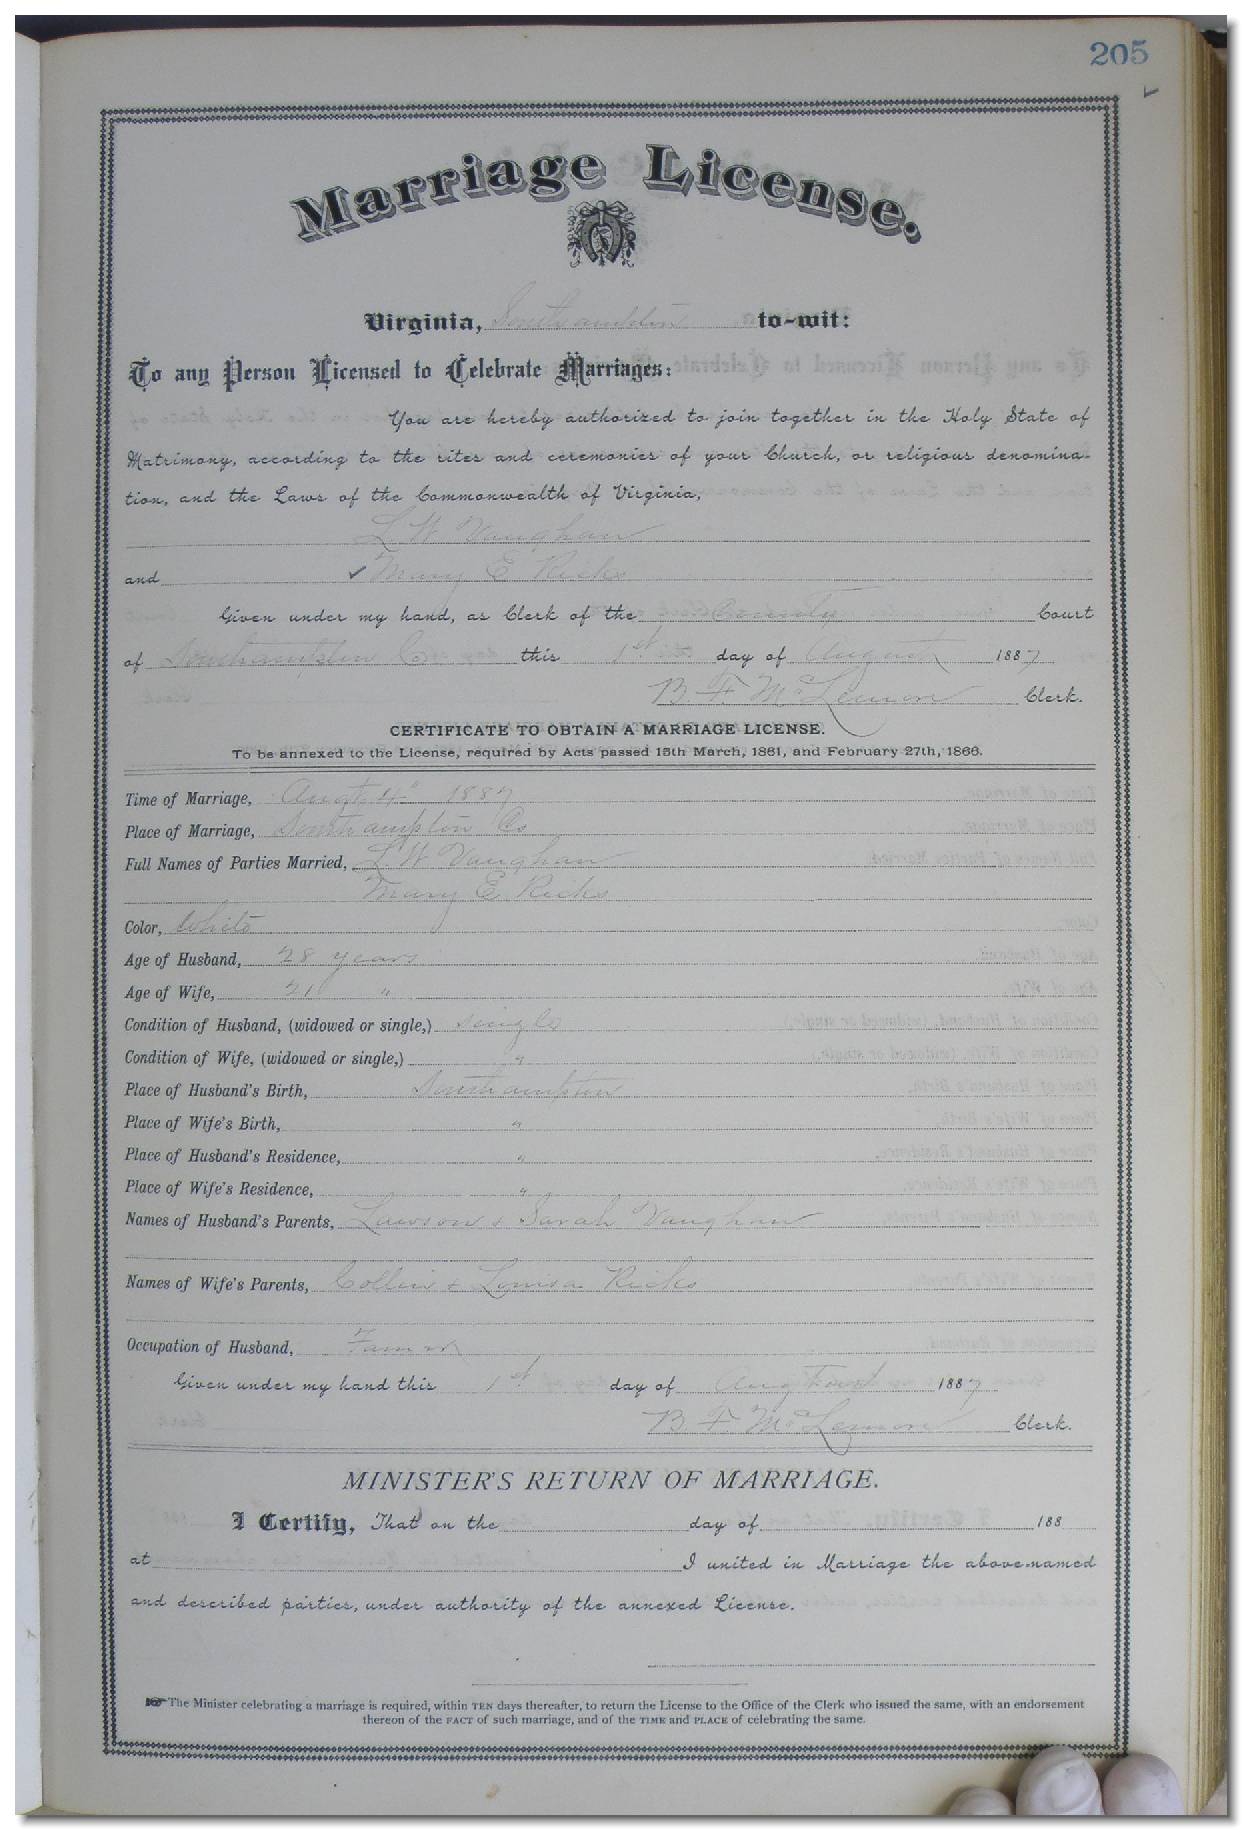 205
Marriage License.
Virginia, Southampton to-wit:
To any Person Licensed to Celebrate Marriages:
You are hereby authorized to join together in the Holy State of
Matrimony, according to the rites and ceremonies of your Church, or religious denomina-
tion, and the Laws of the Commonwealth of Virginia,
L W Vaughan
and ✓ Mary E Ricks
Given under my hand, as Clerk of the County Court
of Southampton Co this 1st day of August 1887
B. F. McLemore Clerk.
CERTIFICATE TO OBTAIN A MARRIAGE LICENSE.
To be annexed to the License, required by Acts passed 15th March, 1861, and February 27th, 1866.
Time of Marriage, Augt 4" 1887
Place of Marriage, Southampton Co
Full Names of Parties Married, L W Vaughan
Mary E Ricks
Color, White
Age of Husband, 28 years
Age of Wife, 21 "
Condition of Husband, (widowed or single,) single
Condition of Wife, (widowed or single,) "
Place of Husband's Birth, Southampton
Place of Wife's Birth, "
Place of Husband's Residence, "
Place of Wife's Residence, "
Names of Husband's Parents, Lawson & Sarah Vaughan
Names of Wife's Parents, Collin & Louisa Ricks
Occupation of Husband, Farmer
Given under my hand this 1st day of August 1887
B. F. McLemore Clerk.
MINISTER'S RETURN OF MARRIAGE.
I Certify, That on the day of 188
at I united in Marriage the above-named
and described parties, under authority of the annexed License.
The Minister celebrating a marriage is required, within TEN days thereafter, to return the License to the Office of the Clerk who issued the same, with an endorsement
thereon of the FACT of such marriage, and of the TIME and PLACE of celebrating the same.